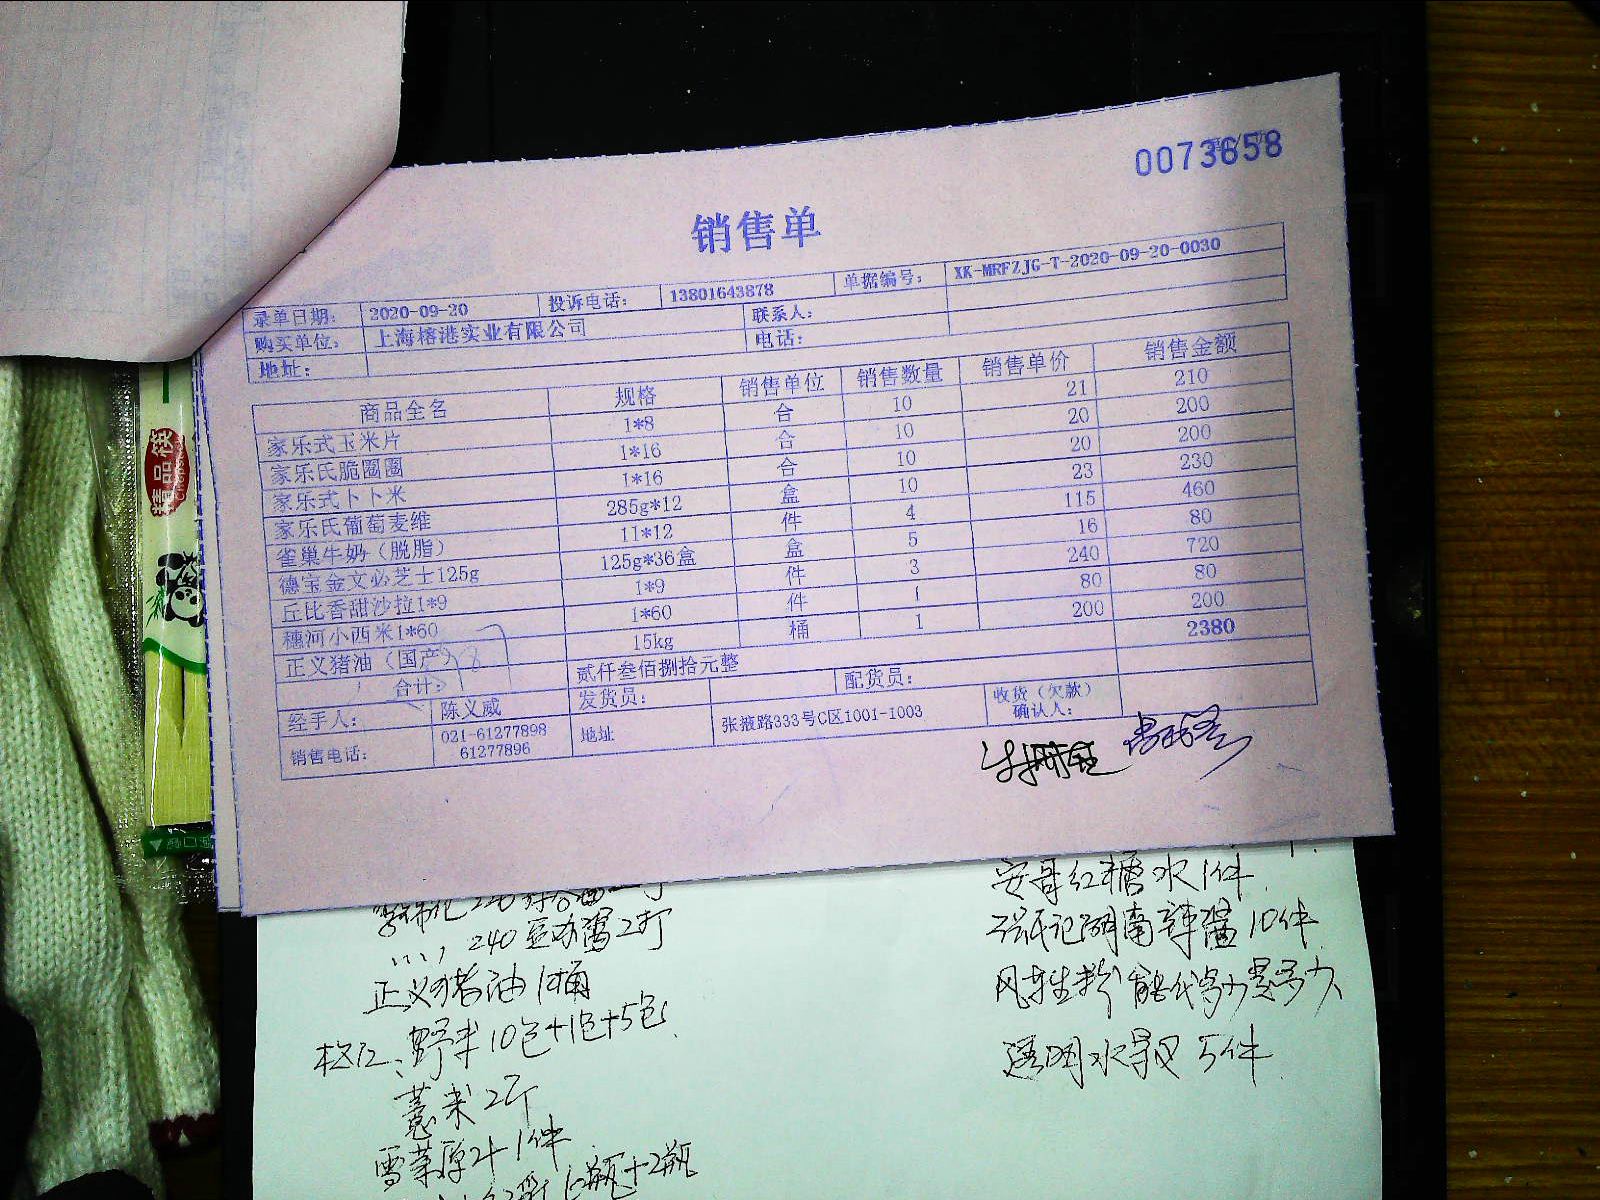 0073658
销售单
录单日期: 2020-09-20 投诉电话: 13801643878 单据编号: XK-MRFZJG-T-2020-09-20-0030
购买单位: 上海榕港实业有限公司 联系人:
地址: 电话:
商品全名 规格 销售单位 销售数量 销售单价 销售金额
家乐式玉米片 1*8 合 10 21 210
家乐氏脆圈圈 1*16 合 10 20 200
家乐式卜卜米 1*16 合 10 20 200
家乐氏葡萄麦维 285g*12 盒 10 23 230
雀巢牛奶（脱脂） 1l*12 件 4 115 460
德宝金文必芝士125g 125g*36盒 盒 5 16 80
丘比香甜沙拉1*9 1*9 件 3 240 720
穗河小西米1*60 1*60 件 1 80 80
正义猪油（国产） 15kg 桶 1 200 200
合计: 贰仟叁佰捌拾元整 2380
经手人: 陈义威 发货员: 配货员: 收货（欠款）确认人:
销售电话: 021-61277898 61277896 地址 张掖路333号C区1001-1003
精品筷
240 2打
正义猪油1桶
野米10包+1包+5包
薏米2斤
1件
+2瓶
安哥红糖水1件
湖南辣 10件
透明水 5件